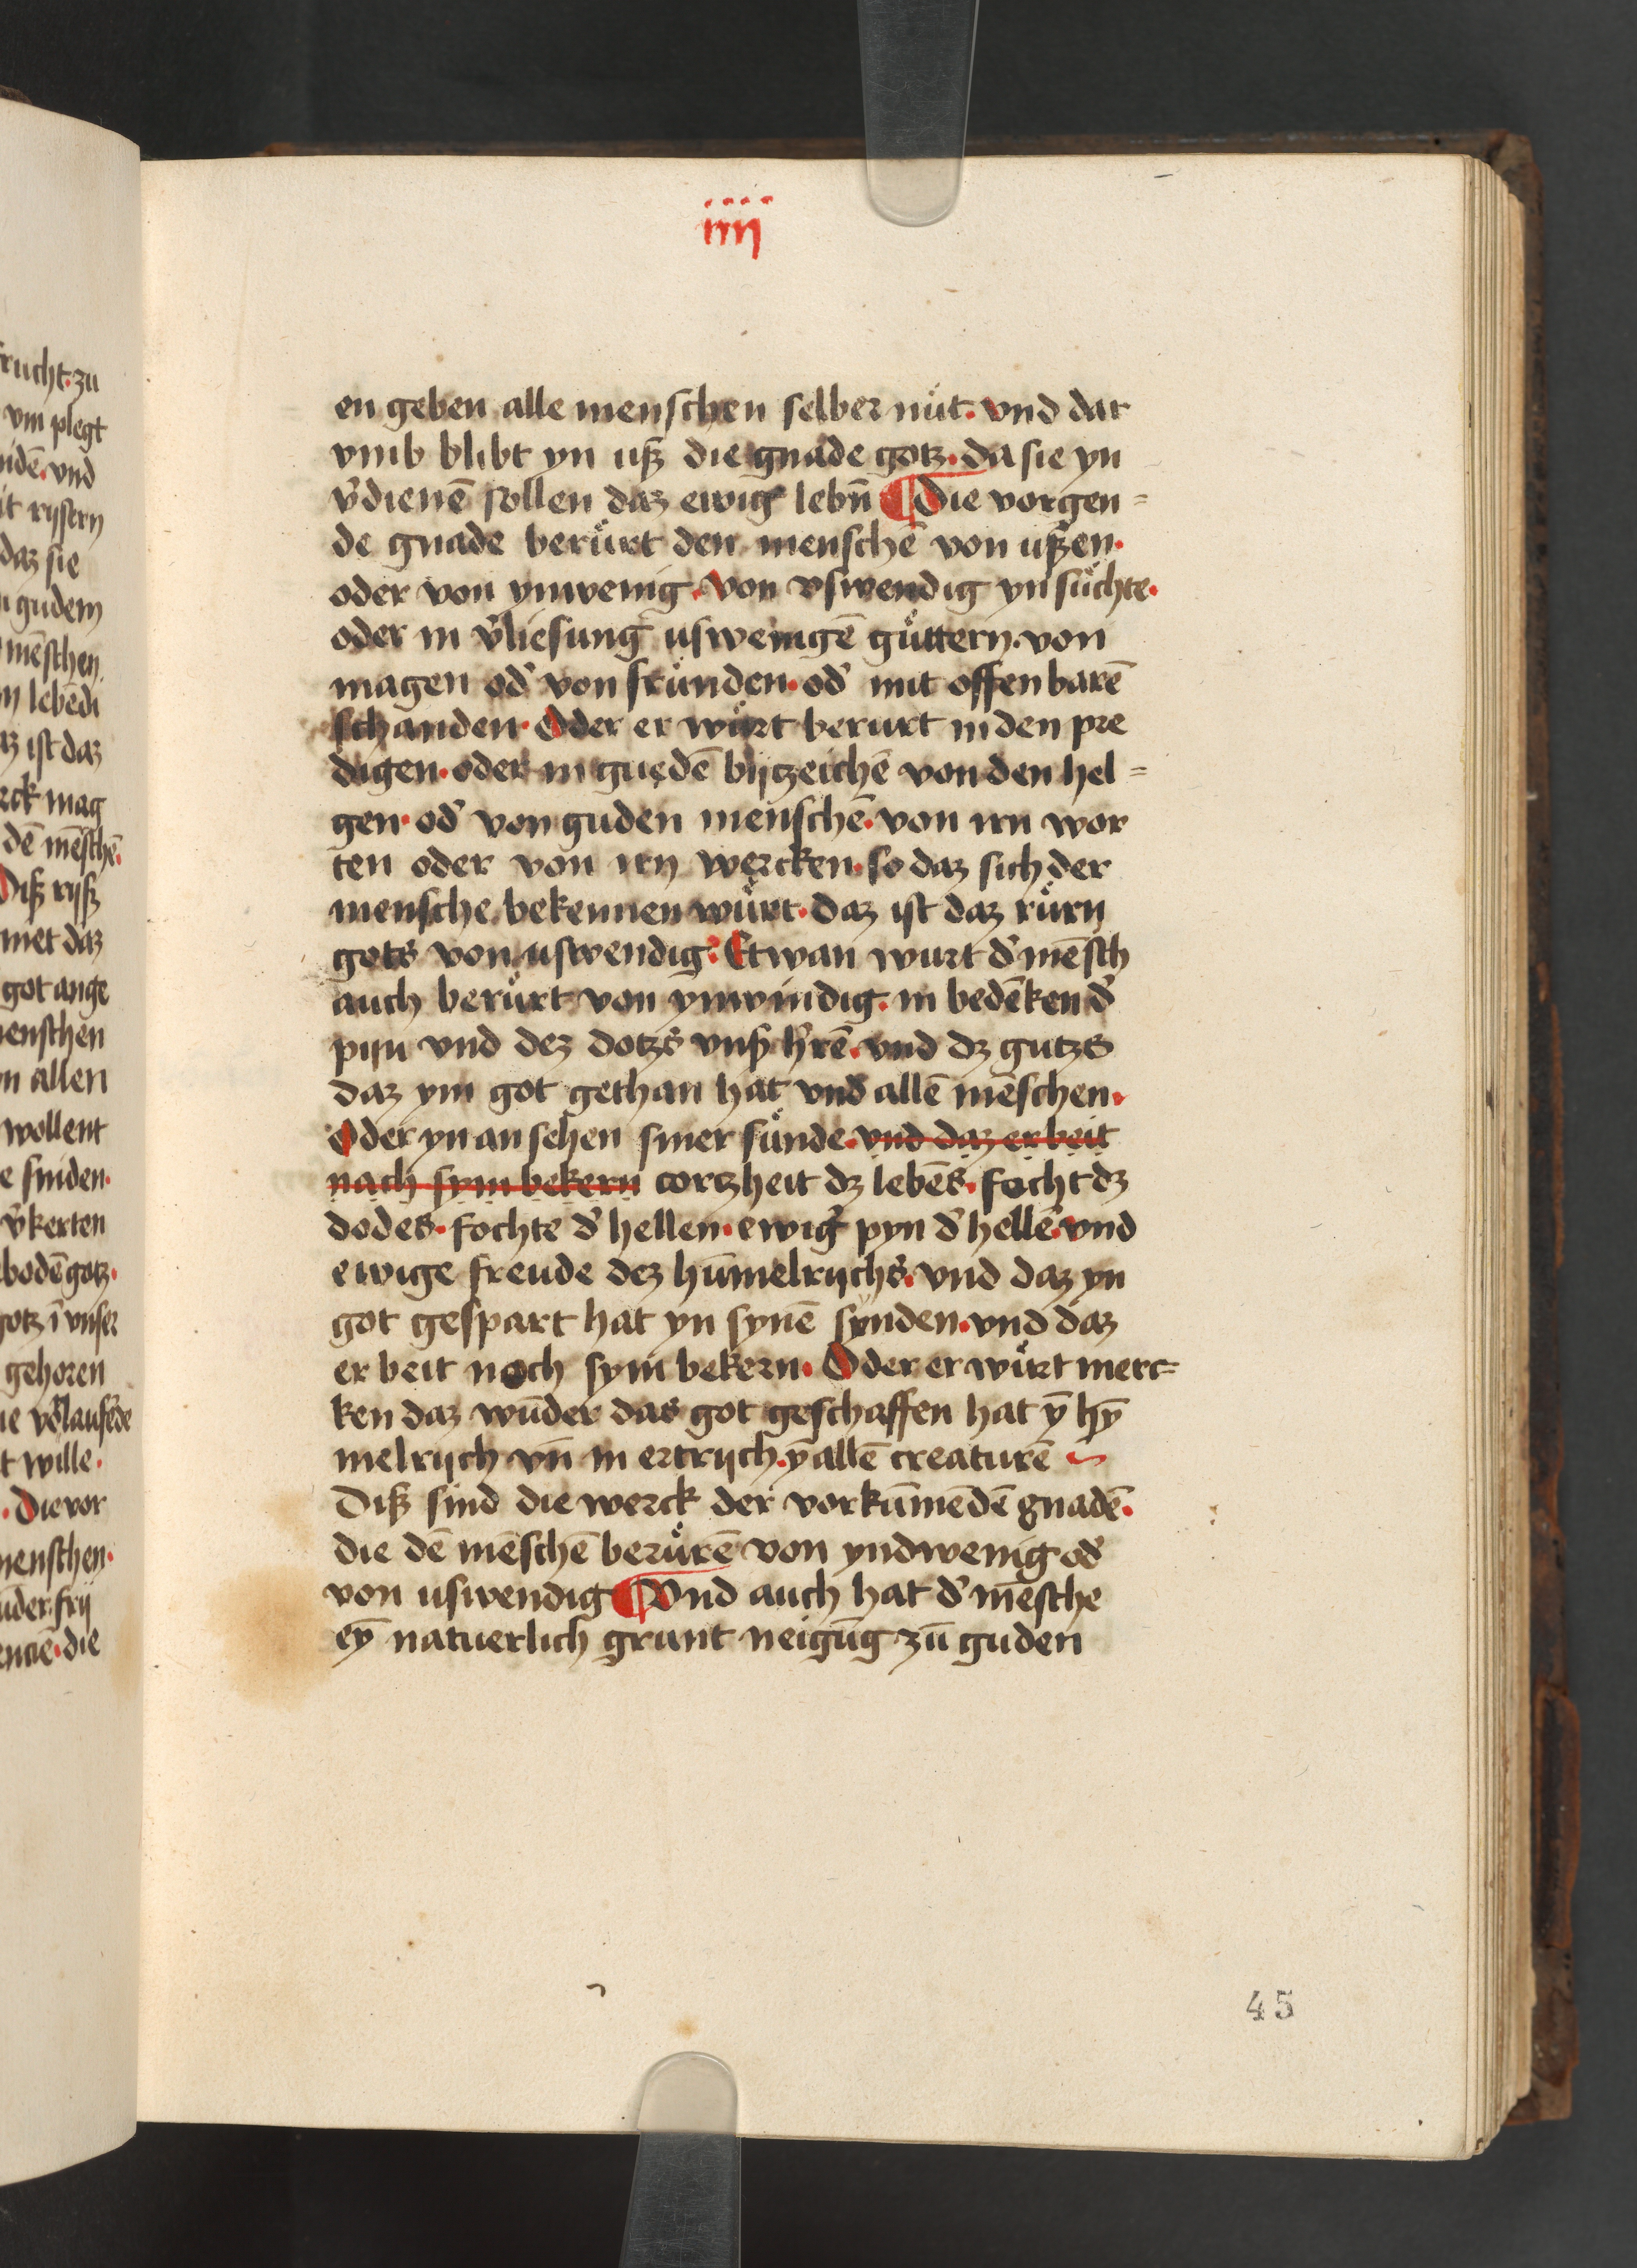 iiij
en geben alle menschen selber nuͤt. vnd dar
vmb blibt yn uß die gnade gotz. da sie yn
v̓dienē sollen daz ewig lebn̄ ¶ Die vorgen=
de gnade beruͤrt den menschē von ußen.
oder von ynwenig. Von vswendig yn suͤchte.
oder in v̓liesung uswenigē guͤttern. von
magen od̓ von fruͤnden. od̓ mit offenbarē
schanden. Oder er wuͤrt berurt in den pre
digen. oder in guedē bijtzeichē von den hel=
gen. od̓ von guden menschē. von irn wor
ten oder von irn wercken. so daz sich der
mensche bekennen wuͤrt. daz ist daz ruͤrn
gots von uswendig. Etwan wurt d̓ mēsch
auch beruͤrt von ynwindig. in bedēken d̓
pijn vnd dez dotzs vnß h̓rē. vnd dz gutzs
daz ym got gethan hat vnd allē mēschen.
Oder yn an sehen siner suͤnde. vnd daz er beit
nach sym bekern cortzheit dz lebēs. focht dz
dodes. fochte d̓ hellen. ewig̓ pyn d̓ hellē. vnd
ewige freude dez hūmelrijchs. vnd daz yn
got gespart hat yn synē synden. vnd daz
er beit noch sym bekern. Oder er wuͤrt merc=
ken daz wūder das got geschaffen hat ȳ hȳ
melrijch vn̄ in ertrijch. ȳ allē creaturē
Diß sind die werck der vorkūmēdē gnadē.
die dē mēschē beruͤrē von yndwenig od̓
von uswendig ¶ Vnd auch hat d̓ mēsche
eȳ natuerlich grunt neigūg zū guden
45